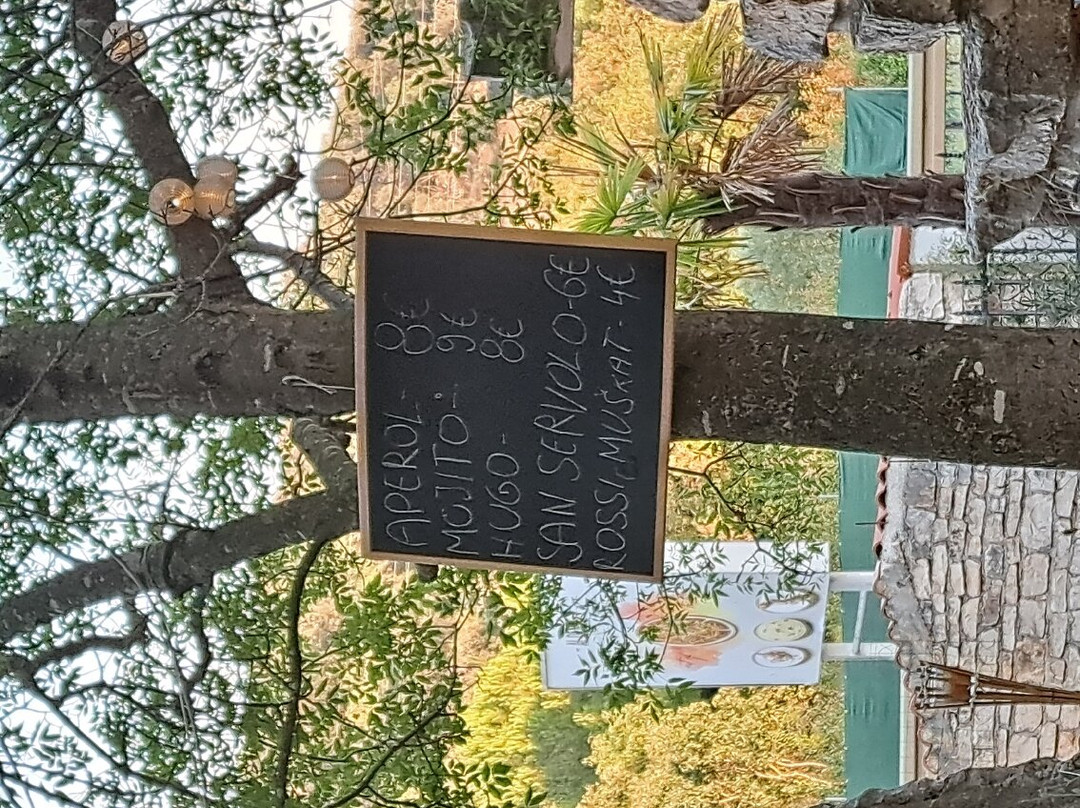 APEROL- 8€
MOJITO: 9€
HUGO - 8€
SAN SERVOLO-6€
ROSSI MUŠKAT- 4€